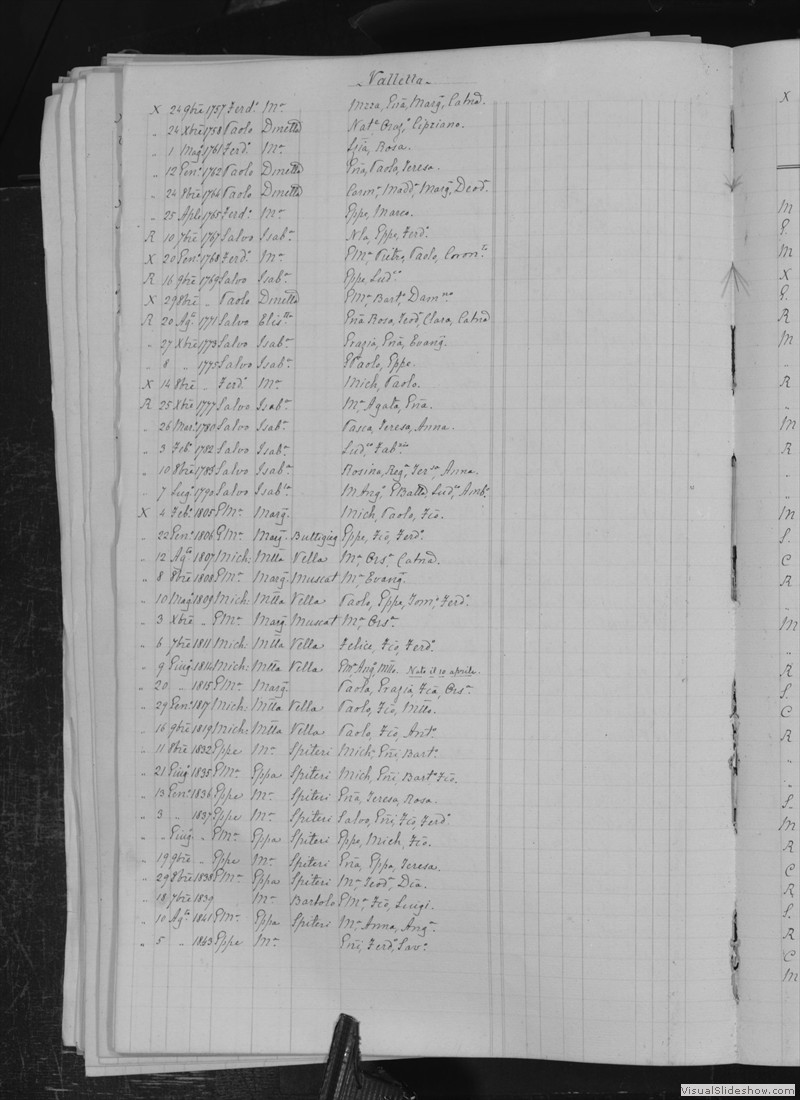 Valletta
X 24 9bre 1757 Ferd. Ma Mzza, Gna, Marg, Catnd.
" 24 Xbre 1758 Paolo Dmetta Nat. Oraz. Cipriano.
" 1 Mag 1761 Ferd. Ma Rosa.
" 12 Genn 1762 Paolo Dmetta Gna, Paolo, Teresa.
" 24 8bre 1764 Paolo Dmetta Marg, Deod.
" 25 Aple 1765 Ferd. Ma Eppe, Marco.
R 10 7bre 1767 Salvo Isab. Nla, Eppe, Ferd.
X 20 Genn 1768 Ferd. Ma Pietro, Paolo,
R 16 9bre 1769 Salvo Isab. Eppe, Lud.
X 29 8bre " Paolo Dmetta Bart.
R 20 Aga 1771 Salvo Elis. Gna Rosa, Teod, Clara, Catnd
" 27 Xbre 1773 Salvo Isab. Grazia, Gna, Evang.
" 8 " 1775 Salvo Isab. Paolo, Eppe.
X 14 8bre " Ferd. Ma Mich, Paolo.
R 25 Xbre 1777 Salvo Isab. Ma Agata, Gna.
" 26 Mar. 1780 Salvo Isab. Pasca, Teresa, Anna.
" 3 Feb. 1782 Salvo Isab. Lud.
" 10 8bre 1785 Salvo Isab. Rosina, Reg. Ter. Anna.
" 7 Lug. 1790 Salvo Isab. M Ang. GBatta, Lud. Amb.
X 4 Feb. 1805 GMa Marg. Mich, Paolo, Fco.
" 22 Genn 1806 GMa Marg. Buttigieg Eppe, Fco, Ferd.
" 12 Aga 1807 Mich: Mtta Vella Ma Ors. Catnd.
" 8 8bre 1808 GMa Marg. Muscat Ma Evang.
" 10 Mag 1809 Mich: Mtta Vella Paolo, Eppe, Tom. Ferd.
" 3 Xbre " GMa Marg. Muscat Ma Ors.
" 6 7bre 1811 Mich: Mtta Vella Felice, Fco, Ferd.
" 9 Giug 1814 Mich: Mtta Vella Ang. Mtto. Nato il 10 aprile.
" 20 " 1815 GMa Marg. Paola, Grazia, Fca, Ors.
" 29 Genn 1817 Mich: Mtta Vella Paolo, Fco, Mtto.
" 16 9bre 1819 Mich: Mtta Vella Paolo, Fco, Ant.
" 11 8bre 1832 Eppe Ma Spiteri Mich. Gni, Bart.
" 21 Giug 1835 GMa Eppa Spiteri Mich, Gni, Bart. Fco.
" 13 Genn 1836 Eppe Ma Spiteri Gna, Teresa, Rosa.
" 3 " 1837 Eppe Ma Spiteri Salvo, Gni, Fco, Ferd.
" " Giug " GMa Eppa Spiteri Eppe, Mich, Fco.
" 19 9bre " Eppe Ma Spiteri Gna, Eppa, Teresa.
" 29 8bre 1838 GMa Eppa Spiteri Ma Teod.
" 18 7bre 1839 Ma Bartolo GMa Fco, Luigi.
" 10 Aga 1841 GMa Eppa Spiteri Ma Anna, Ang.
" 5 " 1843 Eppe Ma Gni, Ferd. Sav.
X
M
G.
M
X
G.
R
M
"
R
"
M
R
"
"
M
S.
C
R
"
M
"
R
S.
C
R
"
"
S.
M
R
C
R
S.
R
C
M
VisualSlideshow.com